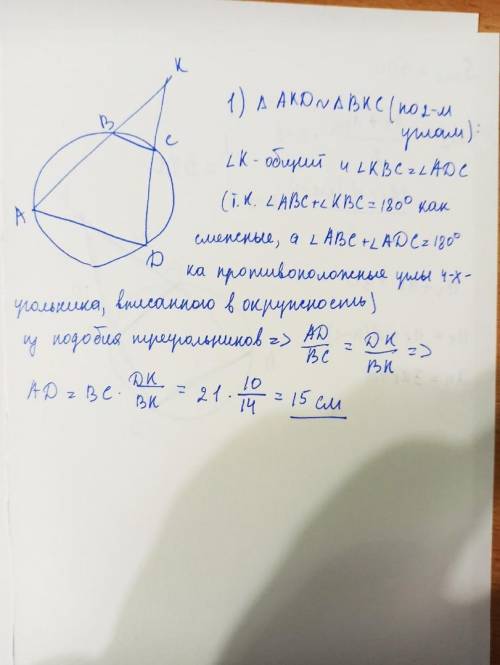 K
B
C
A
D
1) △ AKD ~ △ BKC (по 2-м
углам):
∠K - общий и ∠KBC = ∠ADC
(т.к. ∠ABC + ∠KBC = 180° как
смежные, а ∠ABC + ∠ADC = 180°
ка противоположные углы 4-х-
угольника, вписанного в окружность)
из подобия треугольников => AD/BC = DK/BK =>
AD = BC · DK/BK = 21 · 10/14 = 15 см